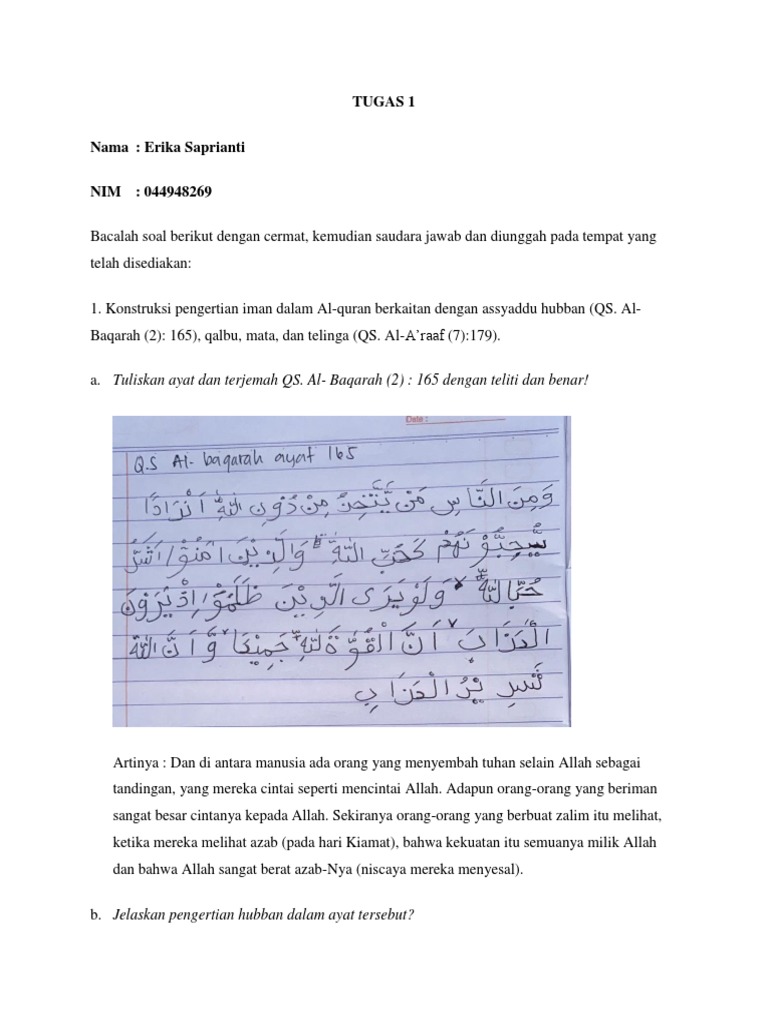 TUGAS 1
Nama : Erika Saprianti
NIM : 044948269
Bacalah soal berikut dengan cermat, kemudian saudara jawab dan diunggah pada tempat yang
telah disediakan:
1. Konstruksi pengertian iman dalam Al-quran berkaitan dengan assyaddu hubban (QS. Al-
Baqarah (2): 165), qalbu, mata, dan telinga (QS. Al-A’raaf (7):179).
a. Tuliskan ayat dan terjemah QS. Al- Baqarah (2) : 165 dengan teliti dan benar!
Date :
Q.S Al- baqarah ayat 165
وَمِنَ النَّاسِ مَنْ يَّتَّخِذُ مِنْ دُوْنِ اللّٰهِ اَنْدَادًا
يُّحِبُّوْنَهُمْ كَحُبِّ اللّٰهِ وَالَّذِيْنَ اٰمَنُوْٓا اَشَدُّ
حُبًّا لِلّٰهِ وَلَوْ يَرَى الَّذِيْنَ ظَلَمُوْٓا اِذْ يَرَوْنَ
الْعَذَابَ اَنَّ الْقُوَّةَ لِلّٰهِ جَمِيْعًا وَّاَنَّ اللّٰهَ
شَدِيْدُ الْعَذَابِ
Artinya : Dan di antara manusia ada orang yang menyembah tuhan selain Allah sebagai
tandingan, yang mereka cintai seperti mencintai Allah. Adapun orang-orang yang beriman
sangat besar cintanya kepada Allah. Sekiranya orang-orang yang berbuat zalim itu melihat,
ketika mereka melihat azab (pada hari Kiamat), bahwa kekuatan itu semuanya milik Allah
dan bahwa Allah sangat berat azab-Nya (niscaya mereka menyesal).
b. Jelaskan pengertian hubban dalam ayat tersebut?